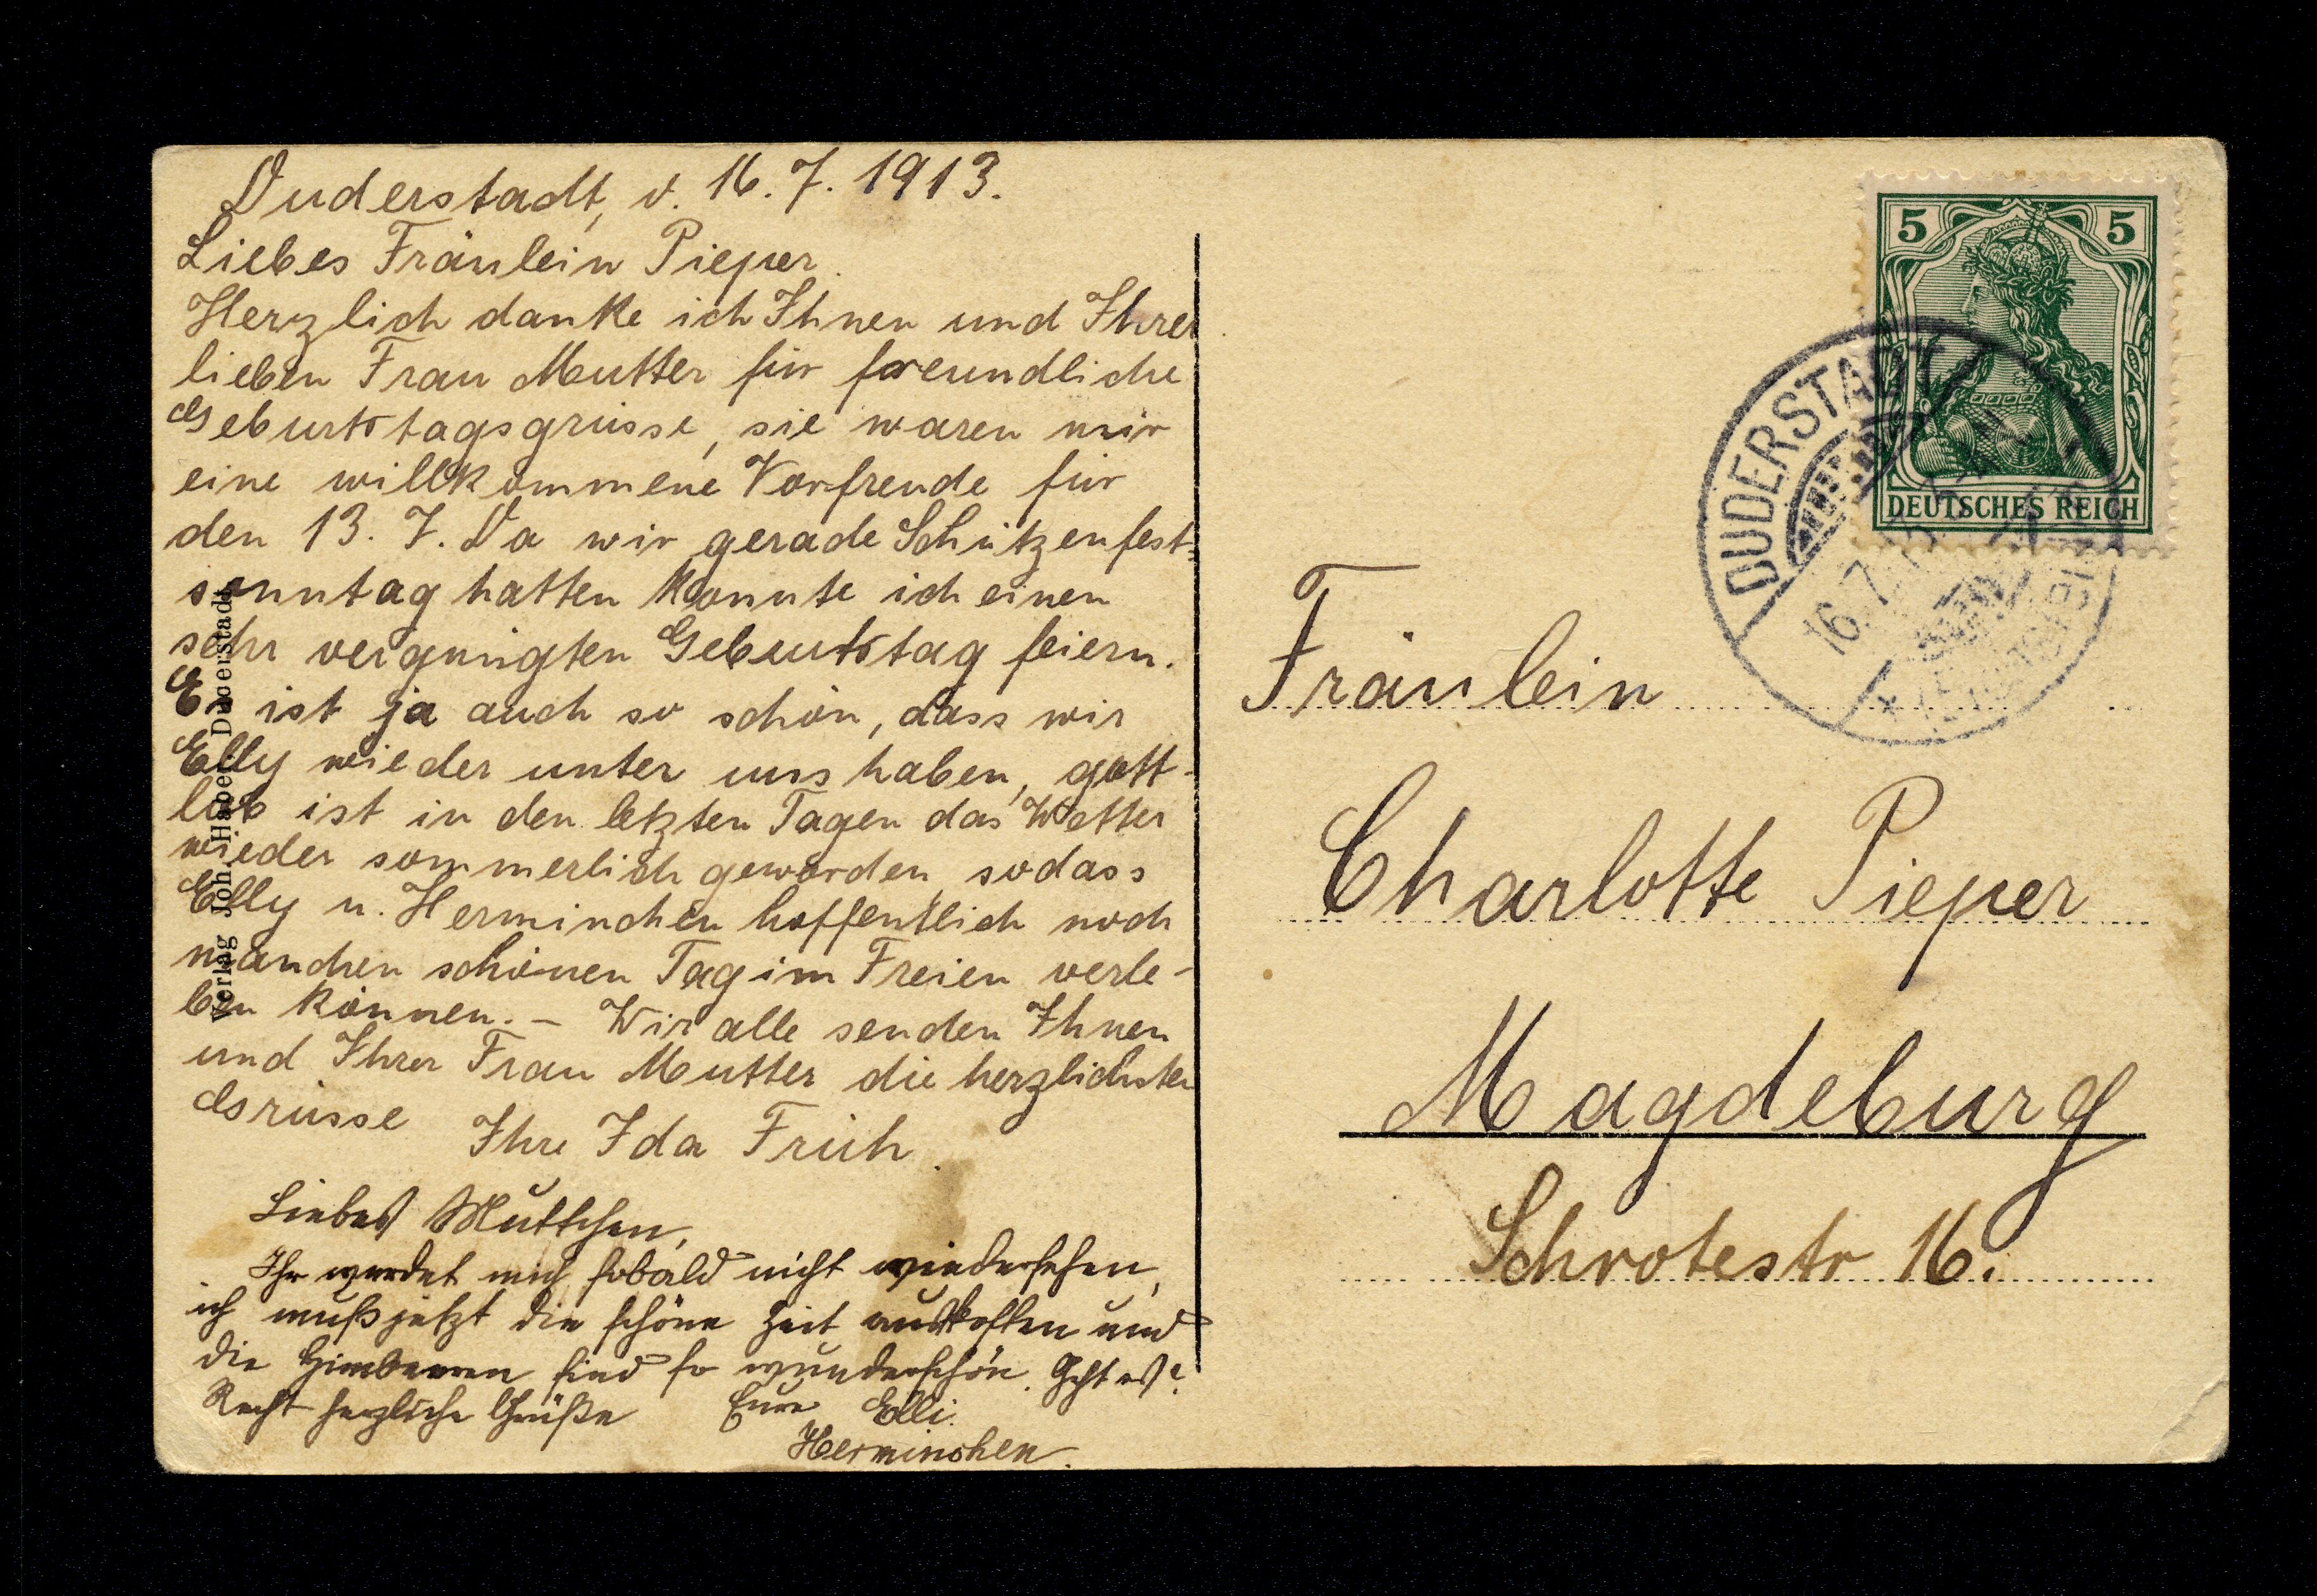 Duderstadt, d. 16. 7. 1913.
Liebes Fräulein Pieper.
Herzlich danke ich Ihnen und Ihrer
lieben Frau Mutter für freundliche
Geburtstagsgrüsse, sie waren mir
eine willkommene Vorfreude für
den 13. 7. Da wir gerade Schützenfest-
sonntag hatten konnte ich einen
sehr vergnügten Geburtstag feiern.
Es ist ja auch so schön, dass wir
Elly wieder unter uns haben, gott-
lob ist in den letzten Tagen das Wetter
wieder sommerlich geworden, sodass
Elly u. Herminchen hoffentlich noch
manchen schönen Tag im Freien verle-
ben können. – Wir alle senden Ihnen
und Ihrer Frau Mutter die herzlichsten
Grüsse Ihre Ida Früh.
Liebes Muttchen,
Ihr werdet mich sobald nicht wiedersehen,
ich muß jetzt die schöne Zeit auskosten und
die Himbeeren sind so wunderschön. Geht es?
Recht herzliche Grüße Eure Elli.
Herminchen.
Verlag Joh. Duderstadt
5 5
DEUTSCHES REICH
DUDERSTADT
16.7.13
Fräulein
Charlotte Pieper
Magdeburg
Schrotestr 16.